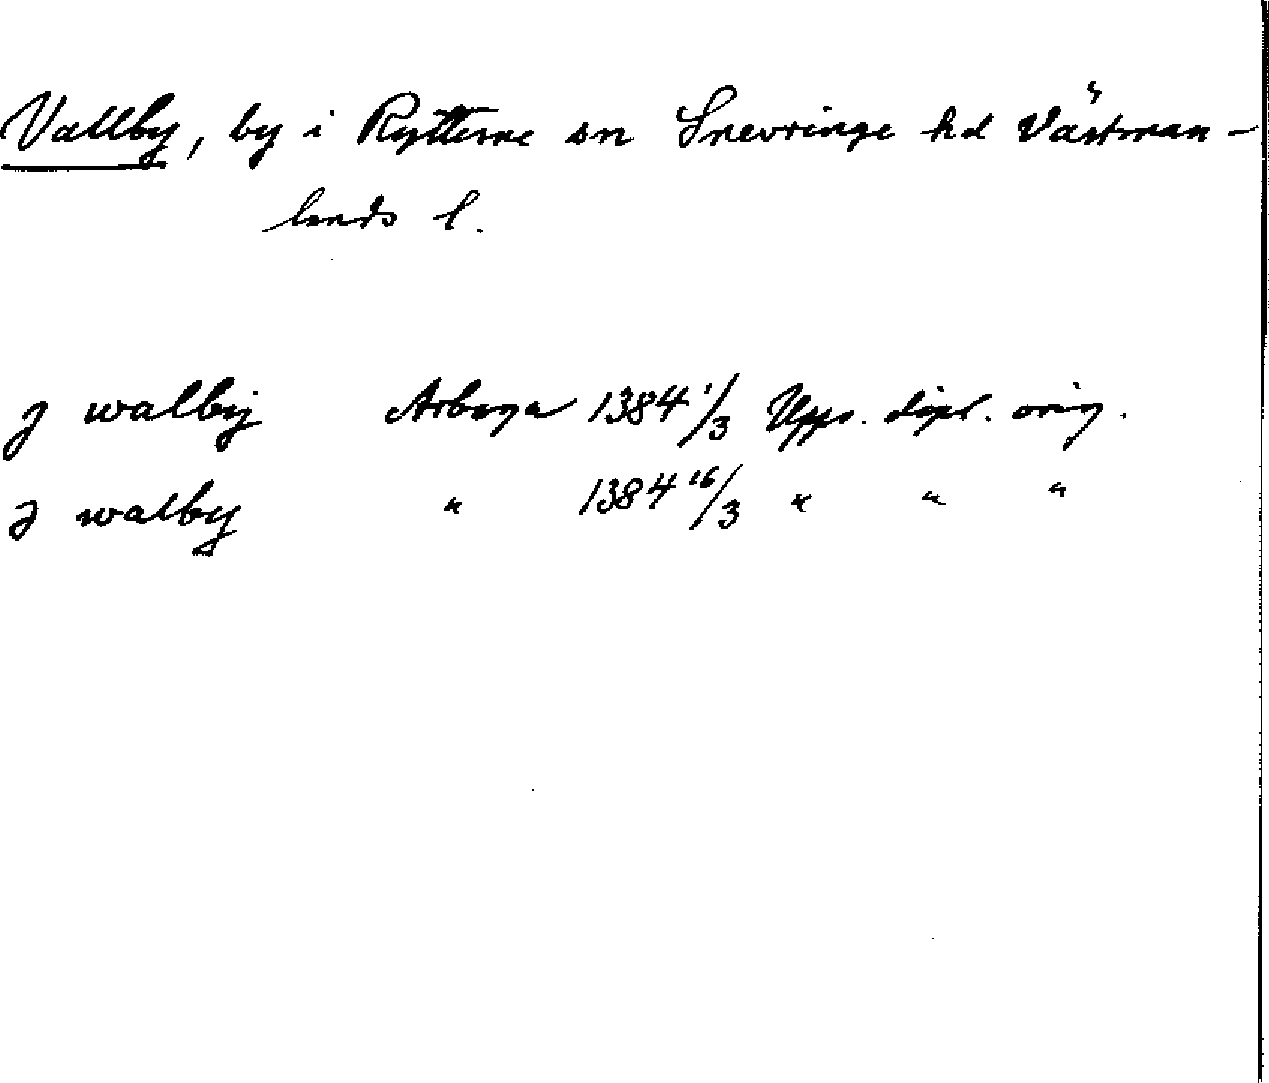 Vallby, by i Rytterne sn Snevringe hd Västman-
lands l.
J walby Arboga 1384 1/3 Upps. dipl. orig.
J walby " 1384 16/3 " " "